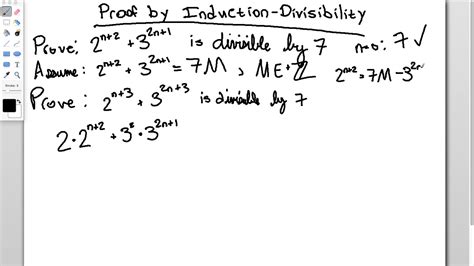 Proof by Induction-Divisibility
Prove: 2^{n+2} + 3^{2n+1} is divisible by 7 n=0: 7 ✓
Assume: 2^{n+2} + 3^{2n+1} = 7M, M ∈ ℤ 2^{n+2} = 7M - 3^{2n
Prove: 2^{n+3} + 3^{2n+3} is divisible by 7
2 · 2^{n+2} + 3^{2} · 3^{2n+1}